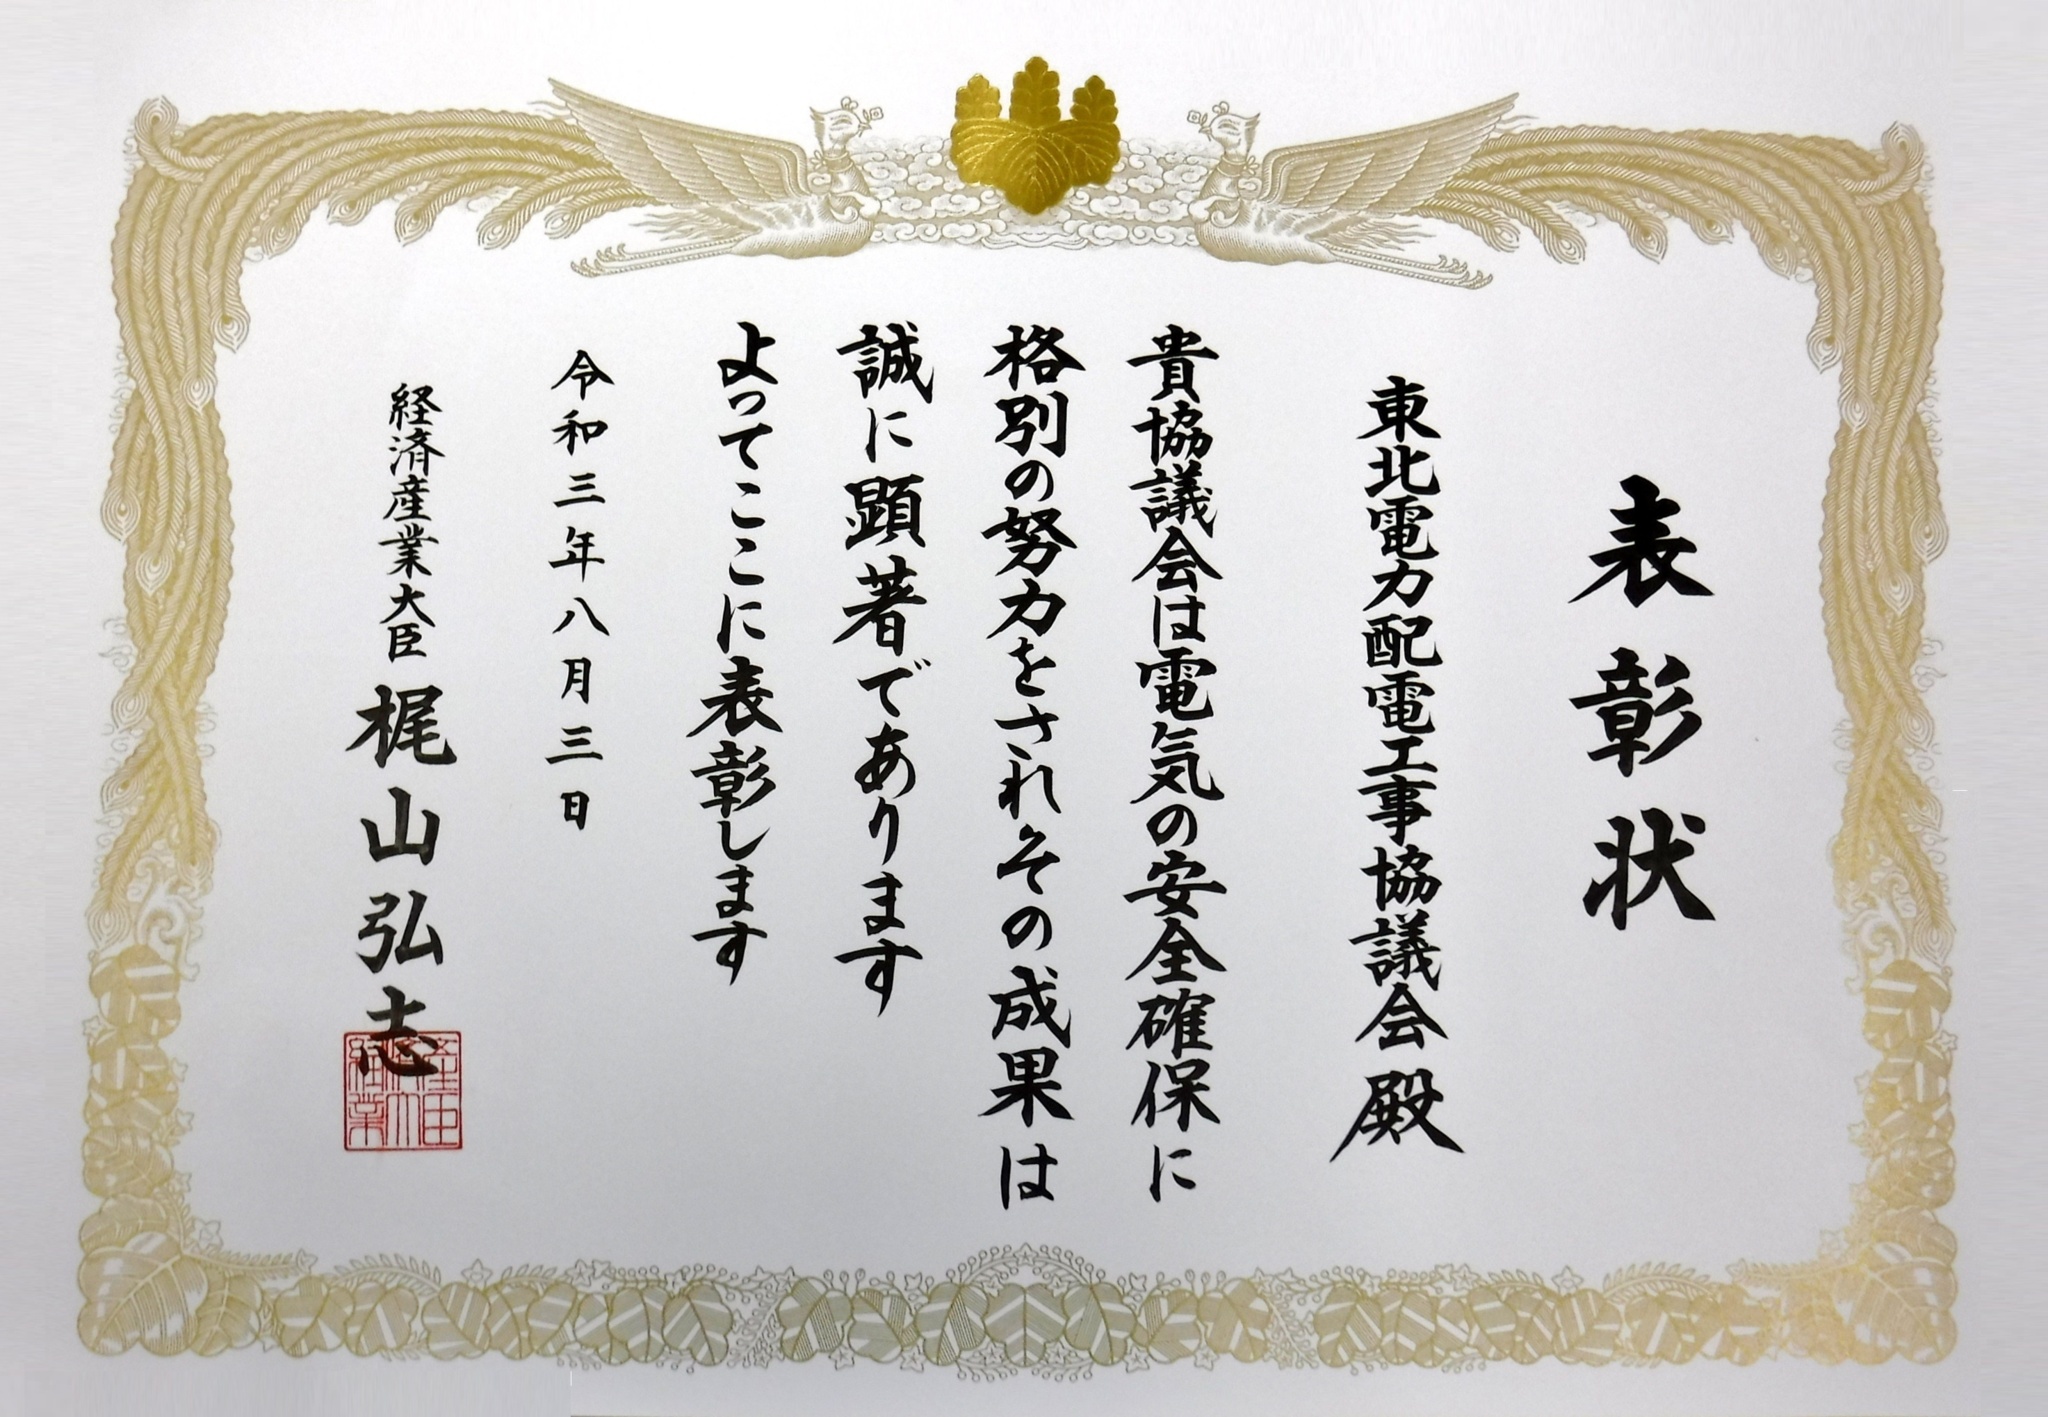 表彰状
東北電力配電工事協議会殿
貴協議会は電気の安全確保に
格別の努力をされその成果は
誠に顕著であります
よってここに表彰します
令和三年八月三日
経済産業大臣 梶山弘志